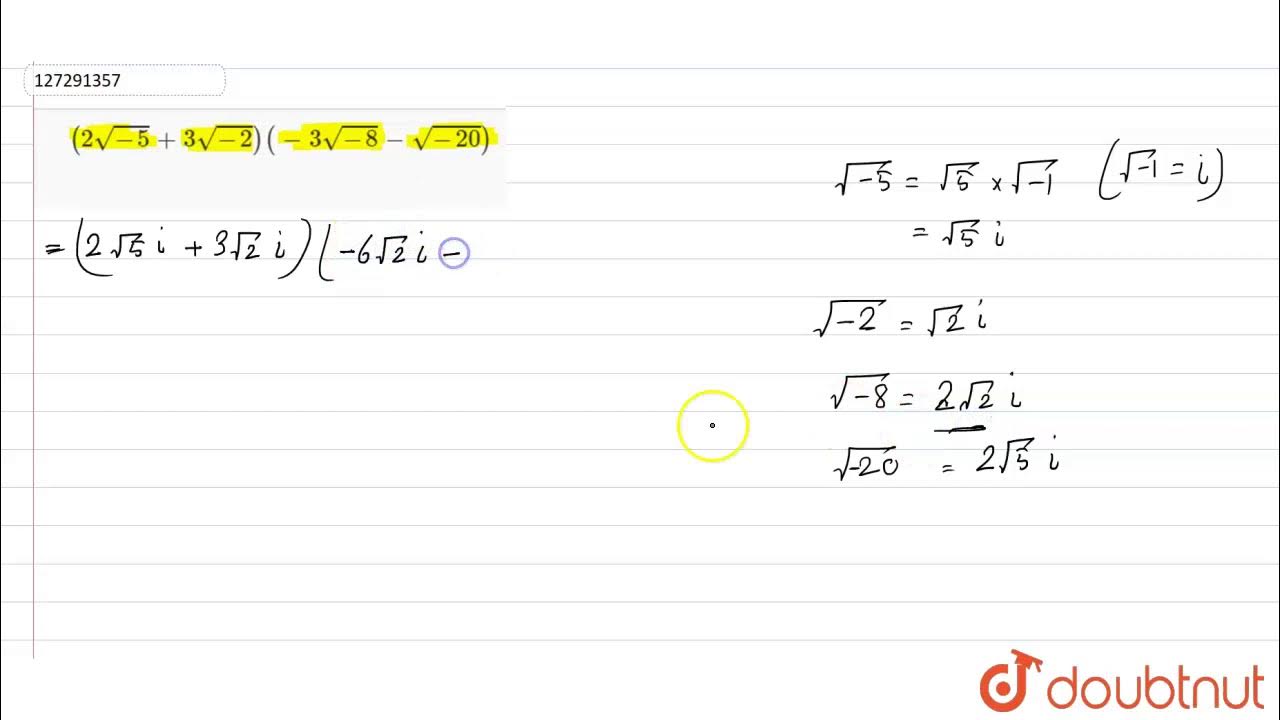 127291357
(2√-5 + 3√-2)(-3√-8 - √-20)
= (2√5 i + 3√2 i)(-6√2 i -
√-5 = √5 × √-1 (√-1 = i)
= √5 i
√-2 = √2 i
√-8 = 2√2 i
√-20 = 2√5 i
doubtnut